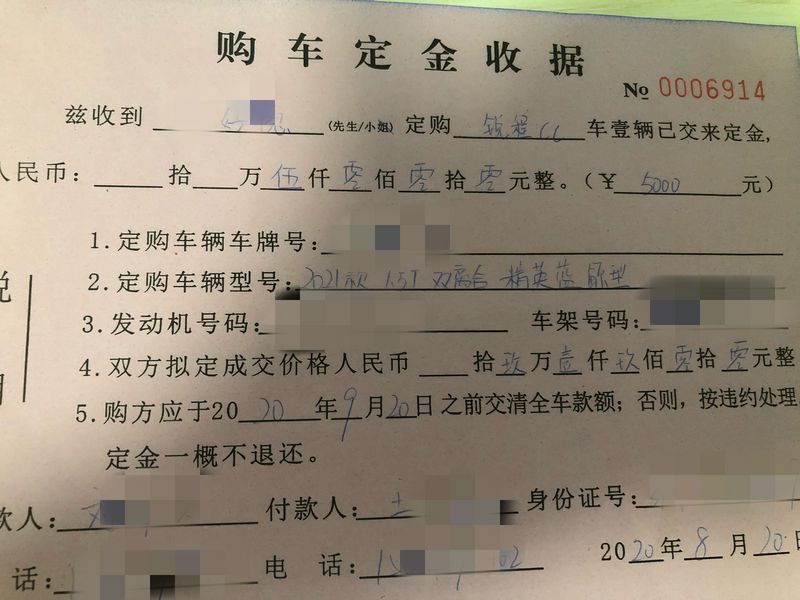 购车定金收据
№ 0006914
兹收到 (先生/小姐) 定购 锐程CC 车壹辆已交来定金,
人民币: 拾 万 伍 仟 零 佰 零 拾 零 元整。(¥ 5000 元)
1.定购车辆车牌号:
2.定购车辆型号: 2021款 1.5T 双离合 精英蓝鲸型
3.发动机号码: 车架号码:
4.双方拟定成交价格人民币 拾 玖 万 壹 仟 玖 佰 零 拾 零 元整
5.购方应于2020年9月20日之前交清全车款额;否则,按违约处理
定金一概不退还。
款人: 付款人: 身份证号:
话: 电 话: 2020年8月20日